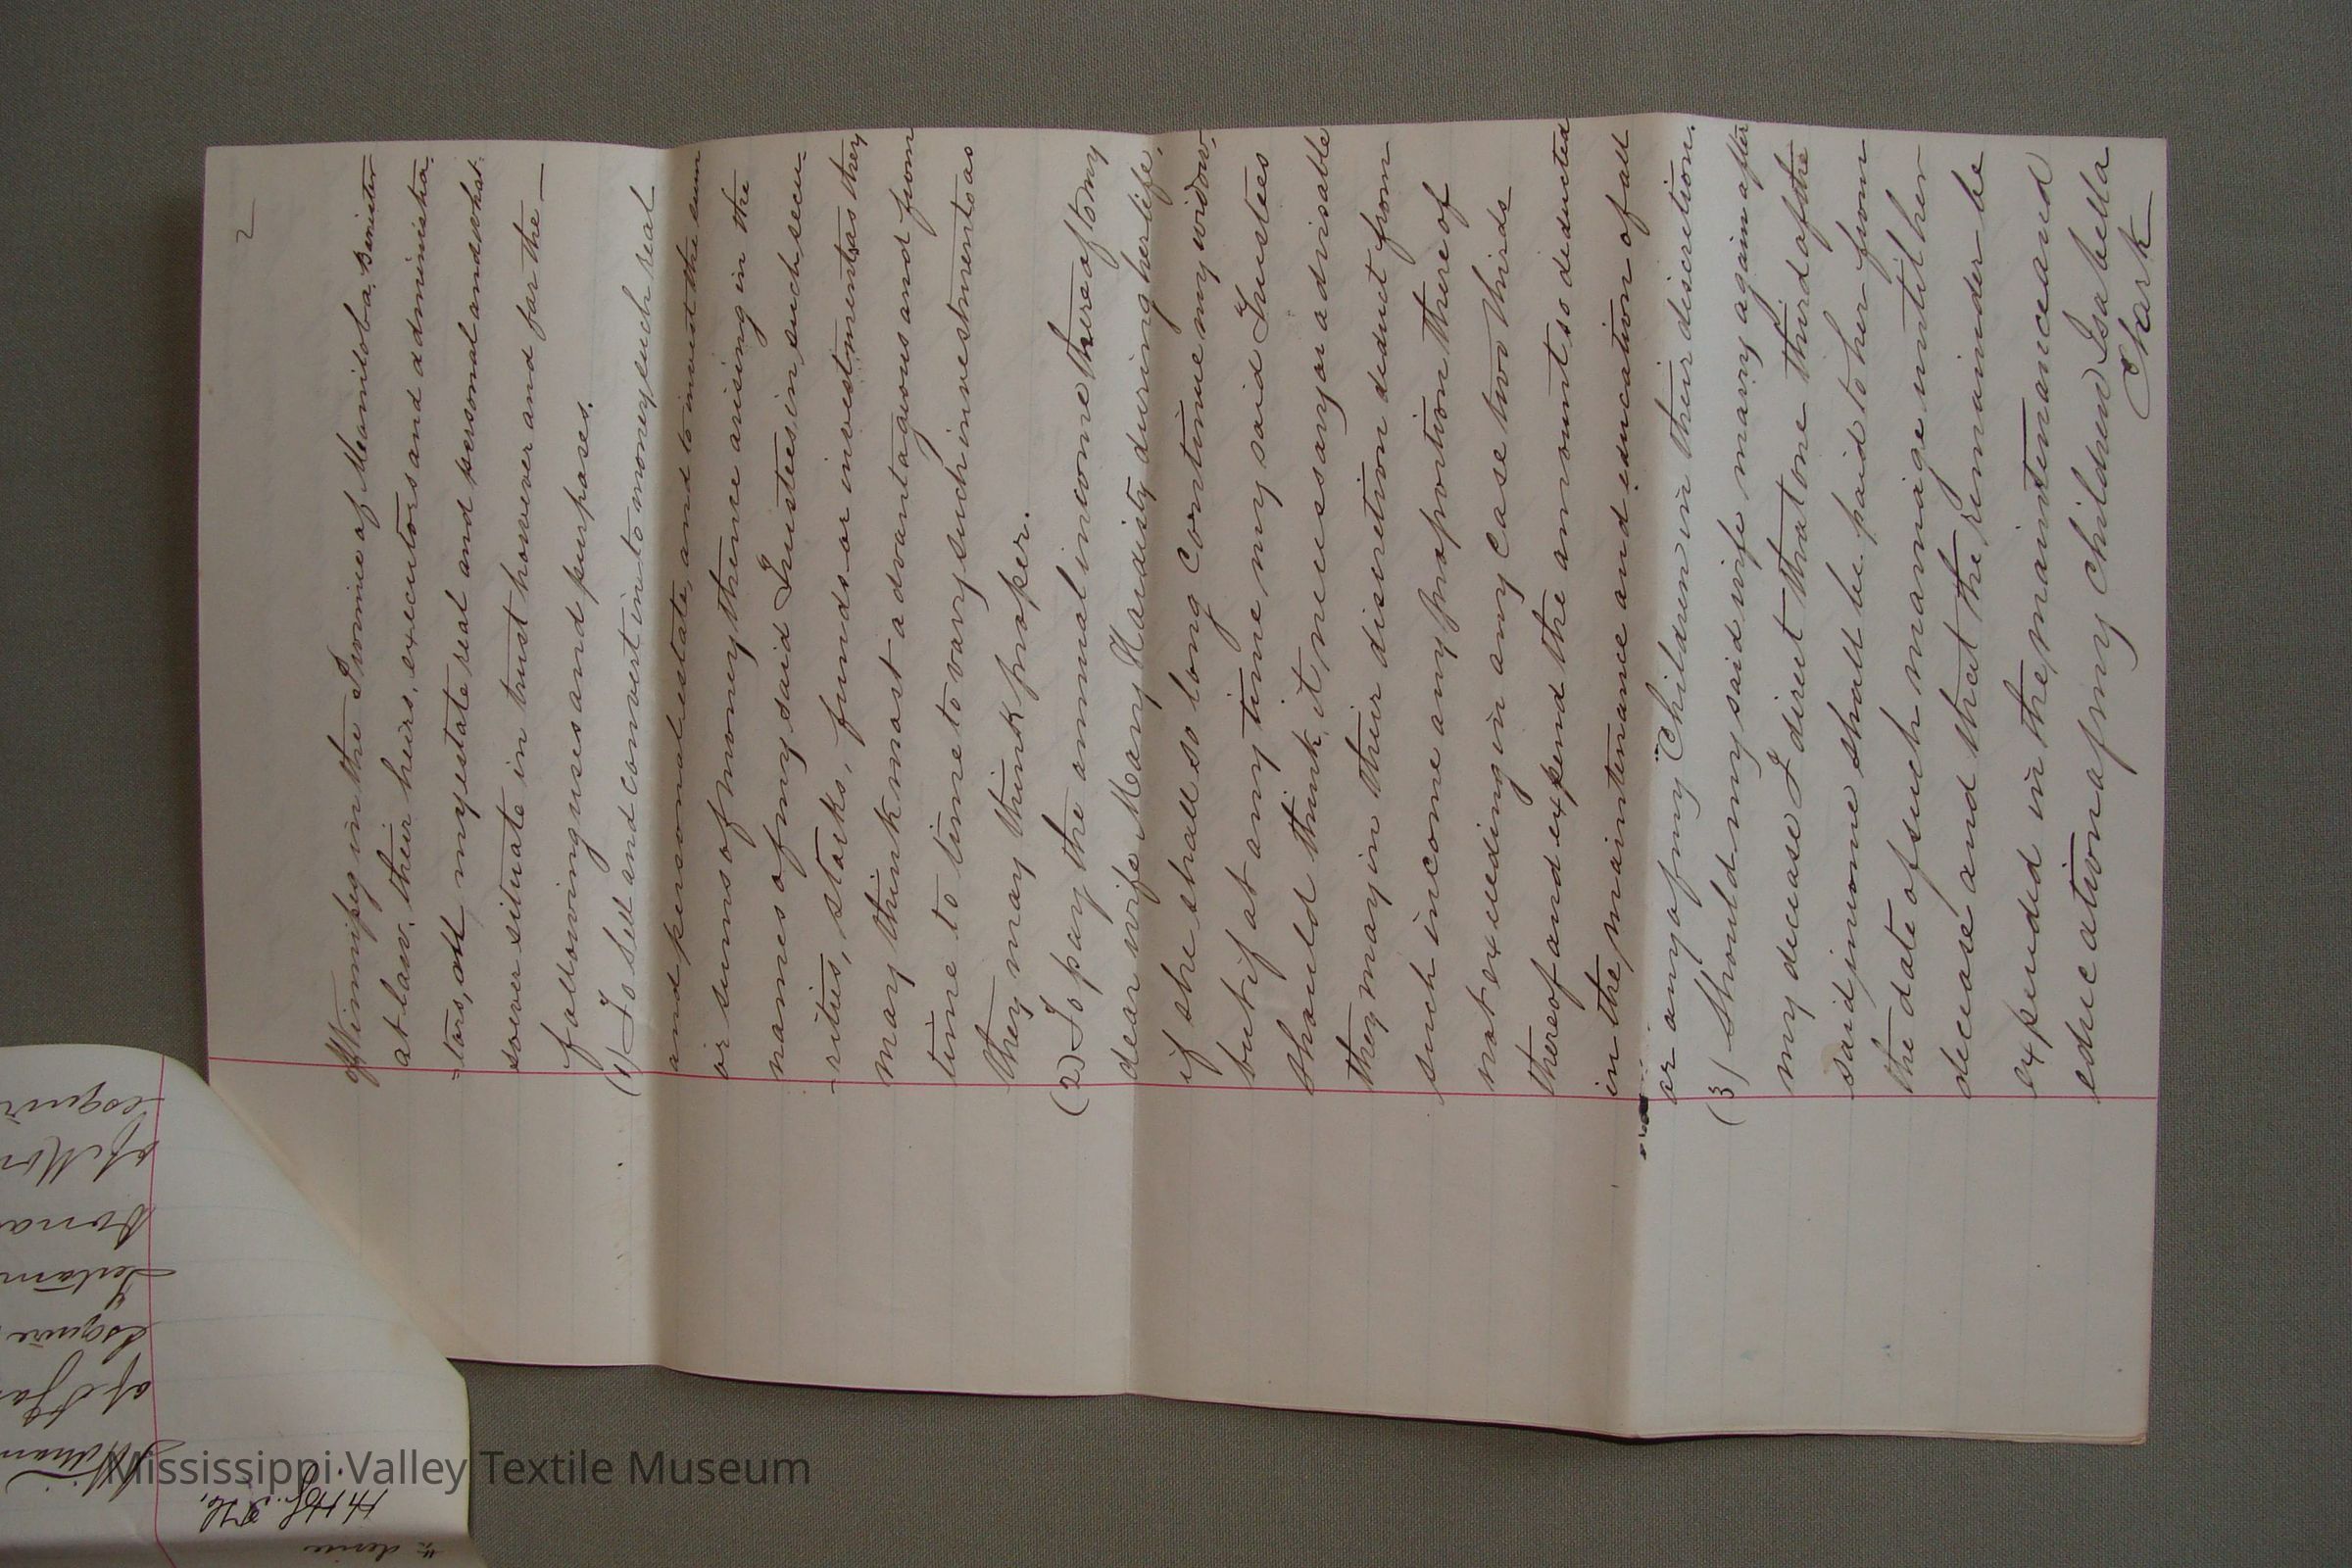 2
of Winnipeg in the Province of Manitoba, Barrister
at law, their heirs, executors and administra-
-tors, all my estate real and personal and what-
soever situate in trust however and for the —
following uses and purposes.
(1) To sell and convert into money such real
and personal estate, and to invest the sum
or sums of money thence arising in the
names of my said Trustees, in such secu-
-rities, stocks, funds or investments as they
may think most advantageous and from
time to time to vary such investments as
they may think proper.
(2) To pay the annual income thereof to my
dear wife Mary Haudisty during her life,
if she shall so long continue my widow,
but if at any time my said Trustees
should think it necessary or advisable
they may in their discretion deduct from
such income any proportion thereof
not exceeding in any case two thirds
thereof and expend the amount so deducted
in the maintenance and education of all
or any of my Children in their discretion.
(3) Should my said wife marry again after
my decease I direct that one third of the
said income shall be paid to her from
the date of such marriage until her
decease and that the remainder be
expended in the maintenance and
education of my Children Isabella
Clark
esquire
of Mon
Dona
esquire
of
Mississippi Valley Textile Museum